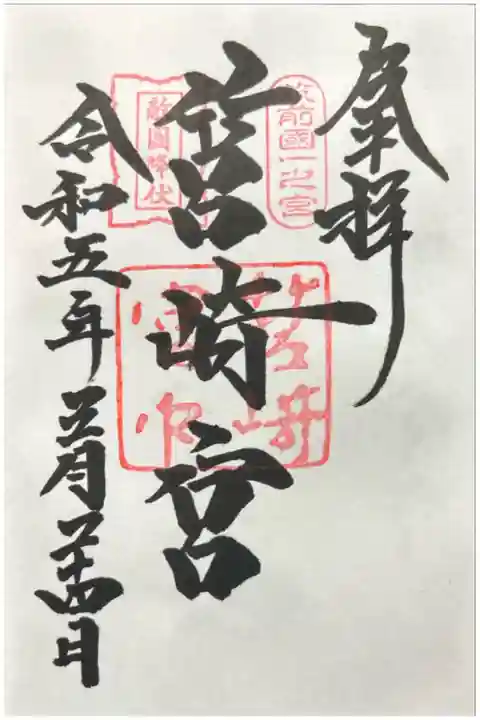 奉拝
筑前國一之宮
筥崎宮
敵國降伏
筥崎宮印
令和五年三月二十四日